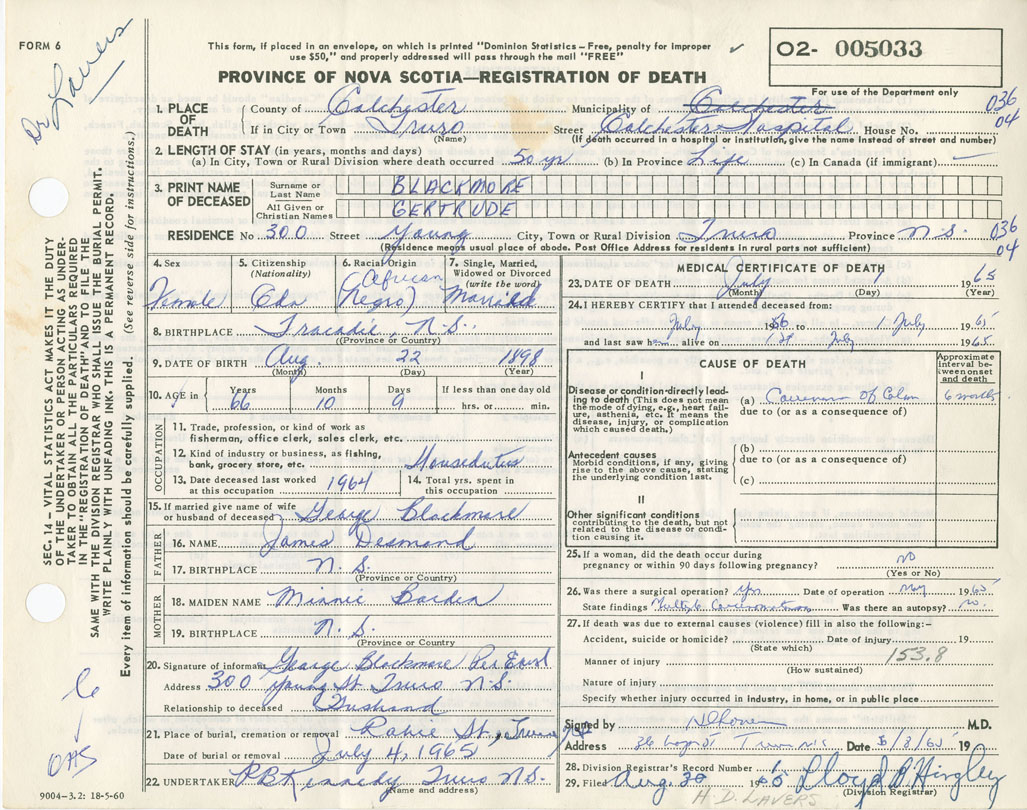 FORM 6
Dr Lavers
This form, if placed in an envelope, on which is printed "Dominion Statistics – Free, penalty for improper
use $50," and properly addressed will pass through the mail "FREE"
O2- 005033
PROVINCE OF NOVA SCOTIA—REGISTRATION OF DEATH
For use of the Department only
1. PLACE OF DEATH
County of Colchester Municipality of Colchester 036
04
If in City or Town Truro Street Colchester Hospital House No.
(Name) (If death occurred in a hospital or institution, give the name instead of street and number)
2. LENGTH OF STAY (in years, months and days)
(a) In City, Town or Rural Division where death occurred 50 yr (b) In Province Life (c) In Canada (if immigrant)
3. PRINT NAME OF DECEASED
Surname or Last Name BLACKMORE
All Given or Christian Names GERTRUDE
RESIDENCE No 300 Street Young City, Town or Rural Division Truro Province N.S. 036
04
(Residence means usual place of abode. Post Office Address for residents in rural parts not sufficient)
4. Sex
Female
5. Citizenship (Nationality)
Cda
6. Racial Origin
(African
Negro)
7. Single, Married, Widowed or Divorced (write the word)
Married
8. BIRTHPLACE Tracadie, N.S.
(Province or Country)
9. DATE OF BIRTH Aug. 22 1898
(Month) (Day) (Year)
10. AGE in Years Months Days If less than one day old
66 10 9 hrs. or min.
OCCUPATION
11. Trade, profession, or kind of work as
fisherman, office clerk, sales clerk, etc.
12. Kind of industry or business, as fishing,
bank, grocery store, etc. Houseduties
13. Date deceased last worked at this occupation 1964
14. Total yrs. spent in this occupation
15. If married give name of wife or husband of deceased George Blackmore
FATHER
16. NAME James Desmond
17. BIRTHPLACE N.S.
(Province or Country)
MOTHER
18. MAIDEN NAME Minnie Borden
19. BIRTHPLACE N.S.
(Province or Country)
20. Signature of informant George Blackmore Per
Address 300 Young St Truro N.S.
Relationship to deceased Husband
21. Place of burial, cremation or removal Robie St., Truro
Date of burial or removal July 4, 1965
22. UNDERTAKER Kennedy Truro N.S.
(Name and address)
9004–3.2: 18-5-60
MEDICAL CERTIFICATE OF DEATH
23. DATE OF DEATH July 1 1965
(Month) (Day) (Year)
24. I HEREBY CERTIFY that I attended deceased from:
July 1956 to 1 July 1965
and last saw h alive on 1st July 1965
CAUSE OF DEATH
Approximate interval between onset and death
I
Disease or condition directly leading to death (This does not mean the mode of dying, e.g., heart failure, asthenia, etc. It means the disease, injury, or complication which caused death.)
(a) Carcinoma of Colon 6 months
due to (or as a consequence of)
Antecedent causes
Morbid conditions, if any, giving rise to the above cause, stating the underlying condition last.
(b)
due to (or as a consequence of)
(c)
II
Other significant conditions
contributing to the death, but not related to the disease or condition causing it.
25. If a woman, did the death occur during
pregnancy or within 90 days following pregnancy? no
(Yes or No)
26. Was there a surgical operation? yes Date of operation May 1965
State findings Multiple Carcinomatosis Was there an autopsy? no.
27. If death was due to external causes (violence) fill in also the following:-
Accident, suicide or homicide? Date of injury 19
(State which)
Manner of injury 153.8
(How sustained)
Nature of injury
Specify whether injury occurred in industry, in home, or in public place
Signed by M.D.
Address Truro NS Date 5/8/65 19
28. Division Registrar's Record Number
29. Filed Aug. 30 1965 Lloyd P. Hingley
(Division Registrar)
H. D. LAVERS
SEC. 14 – VITAL STATISTICS ACT MAKES IT THE DUTY
OF THE UNDERTAKER OR PERSON ACTING AS UNDER-
TAKER TO OBTAIN ALL THE PARTICULARS REQUIRED
IN THE "REGISTRATION OF DEATH" AND TO FILE THE
SAME WITH THE DIVISION REGISTRAR WHO SHALL ISSUE THE BURIAL PERMIT.
WRITE PLAINLY WITH UNFADING INK. THIS IS A PERMANENT RECORD.
Every item of information should be carefully supplied. (See reverse side for instructions.)